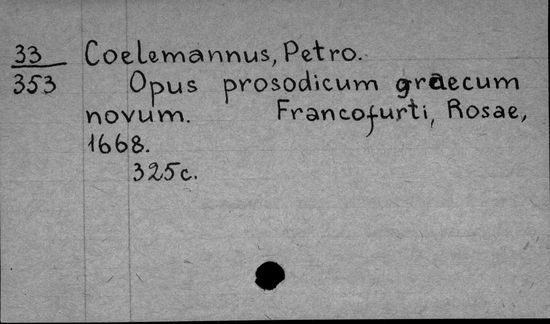 33 Coelemannus, Petro.
353 Opus prosodicum graecum
novum. Francofurti, Rosae,
1668.
325c.